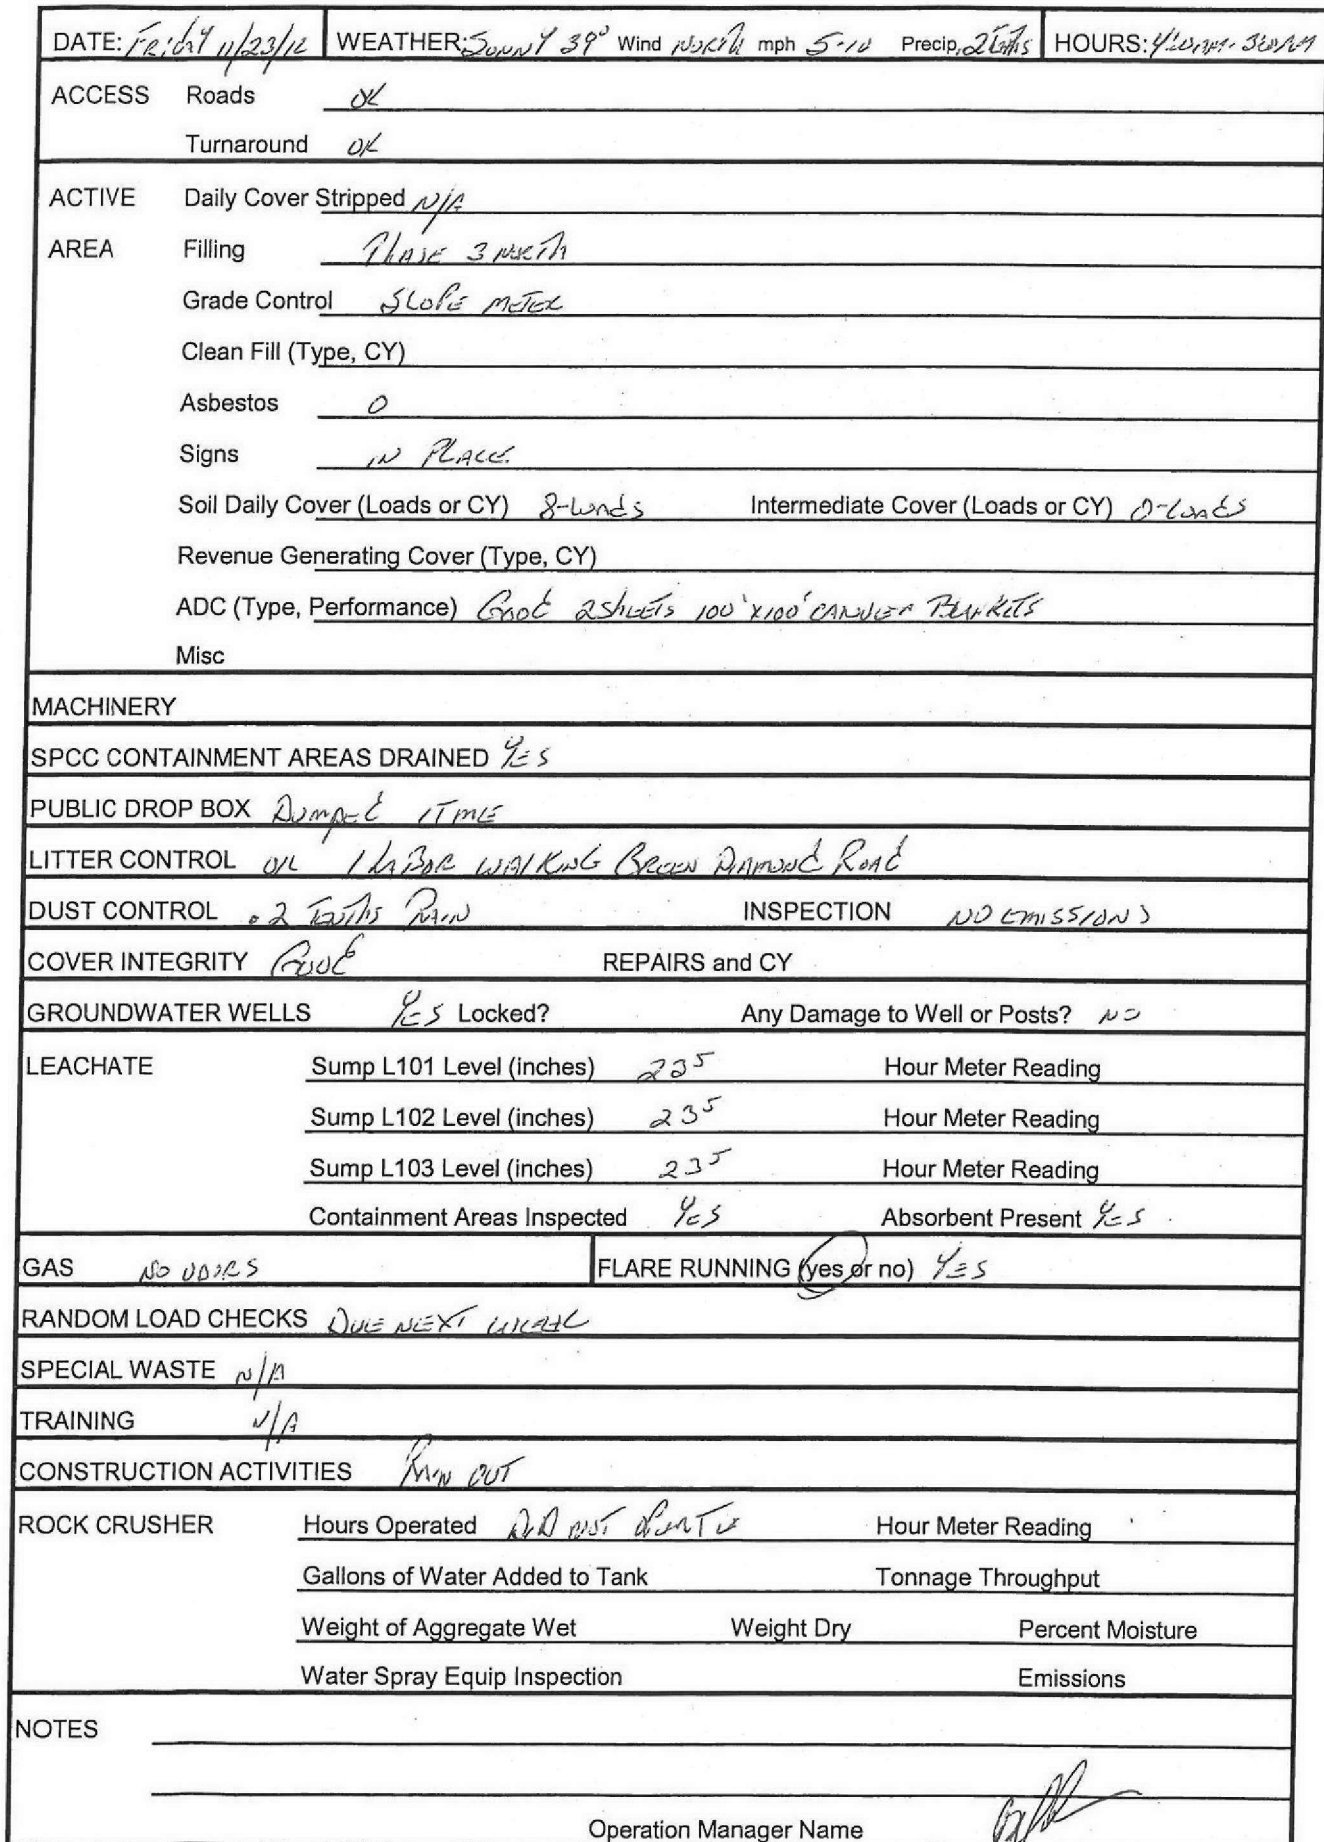 DATE: Friday 11/23/12 WEATHER: Sunny 39° Wind North mph 5-10 Precip. 2 Tenths HOURS: 4:00AM-3:00PM
ACCESS Roads OK
Turnaround OK
ACTIVE Daily Cover Stripped N/A
AREA Filling Phase 3 North
Grade Control SLOPE METER
Clean Fill (Type, CY)
Asbestos 0
Signs IN PLACE
Soil Daily Cover (Loads or CY) 8-Loads Intermediate Cover (Loads or CY) 0-Loads
Revenue Generating Cover (Type, CY)
ADC (Type, Performance) Good 2 Sheets 100'x100' Blankets
Misc
MACHINERY
SPCC CONTAINMENT AREAS DRAINED YES
PUBLIC DROP BOX Dumped 1 TIME
LITTER CONTROL OK 1 LABOR WALKING GREEN DIAMOND ROAD
DUST CONTROL .2 Tenths Rain INSPECTION NO EMISSIONS
COVER INTEGRITY Good REPAIRS and CY
GROUNDWATER WELLS YES Locked? Any Damage to Well or Posts? NO
LEACHATE Sump L101 Level (inches) 23⁵ Hour Meter Reading
Sump L102 Level (inches) 23⁵ Hour Meter Reading
Sump L103 Level (inches) 23⁵ Hour Meter Reading
Containment Areas Inspected YES Absorbent Present YES
GAS NO ODORS FLARE RUNNING (yes or no) YES
RANDOM LOAD CHECKS DUE NEXT WEEK
SPECIAL WASTE N/A
TRAINING N/A
CONSTRUCTION ACTIVITIES Rain OUT
ROCK CRUSHER Hours Operated DID NOT OPERATE Hour Meter Reading
Gallons of Water Added to Tank Tonnage Throughput
Weight of Aggregate Wet Weight Dry Percent Moisture
Water Spray Equip Inspection Emissions
NOTES
Operation Manager Name